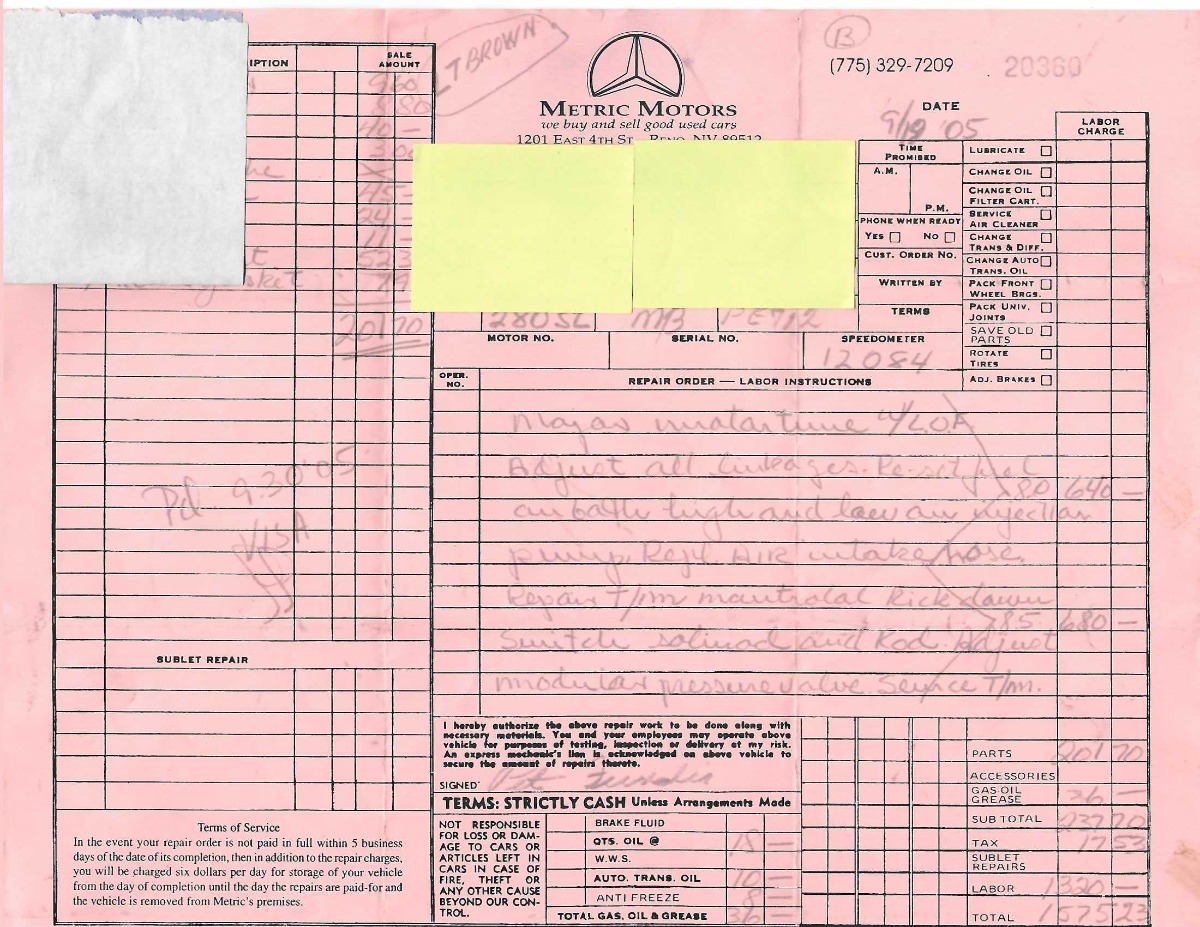 T BROWN
B
(775) 329-7209
20360
METRIC MOTORS
we buy and sell good used cars
1201 EAST 4TH ST RENO, NV 89512
DATE
9/19 '05
IPTION
SALE AMOUNT
960
880
40 —
300
X
45 —
24 —
11 —
523
79
20170
LABOR CHARGE
TIME PROMISED
A.M.
P.M.
PHONE WHEN READY
YES NO
CUST. ORDER NO.
WRITTEN BY
TERMS
LUBRICATE
CHANGE OIL
CHANGE OIL FILTER CART.
SERVICE AIR CLEANER
CHANGE TRANS & DIFF.
CHANGE AUTO TRANS. OIL
PACK FRONT WHEEL BRGS.
PACK UNIV. JOINTS
SAVE OLD PARTS
ROTATE TIRES
ADJ. BRAKES
280SL MB
MOTOR NO.
SERIAL NO.
SPEEDOMETER
12084
OPER. NO.
REPAIR ORDER — LABOR INSTRUCTIONS
Major
Adjust all linkages. Re-set
80 640 —
high and low injection
pump. Repl. AIR intake hose.
Repair T/m Kick down
85 680 —
Switch and Rod. Adjust
modular pressure valve. Service T/m.
Pd 9.30'05
VISA
SUBLET REPAIR
I hereby authorize the above repair work to be done along with
necessary materials. You and your employees may operate above
vehicle for purposes of testing, inspection or delivery at my risk.
An express mechanic's lien is acknowledged on above vehicle to
secure the amount of repairs thereto.
SIGNED
TERMS: STRICTLY CASH Unless Arrangements Made
NOT RESPONSIBLE
FOR LOSS OR DAM-
AGE TO CARS OR
ARTICLES LEFT IN
CARS IN CASE OF
FIRE, THEFT OR
ANY OTHER CAUSE
BEYOND OUR CON-
TROL.
BRAKE FLUID
QTS. OIL @ 18 —
W.W.S.
AUTO. TRANS. OIL 10 —
ANTI FREEZE 8 —
TOTAL GAS, OIL & GREASE 36 —
PARTS 20170
ACCESSORIES
GAS-OIL GREASE 36 —
SUB TOTAL 23770
TAX 1753
SUBLET REPAIRS
LABOR 1320 —
TOTAL 157523
Terms of Service
In the event your repair order is not paid in full within 5 business
days of the date of its completion, then in addition to the repair charges,
you will be charged six dollars per day for storage of your vehicle
from the day of completion until the day the repairs are paid-for and
the vehicle is removed from Metric's premises.